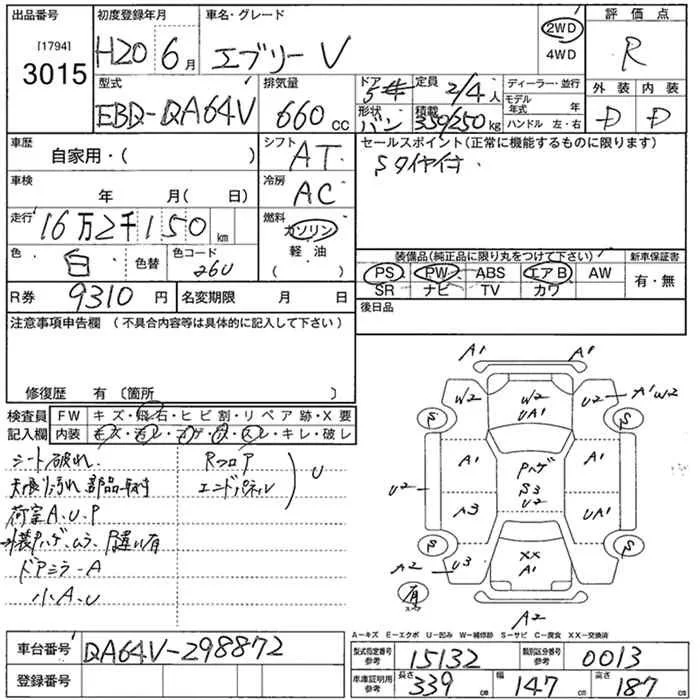 出品番号 初度登録年月 車名・グレード 評価点
[1794]
3015 H20 6月 エブリー V 2WD 4WD R
型式 排気量 ドア 定員 ディーラー・並行 外装 内装
EBD-DA64V 660cc 5 2/4人 モデル年式 年 D D
形状 積載 ハンドル 左・右
バン 350/250kg
車歴 自家用・( ) シフト AT セールスポイント(正常に機能するものに限ります)
Sタイヤ付
車検 年 月( 日) 冷房 AC
走行 16万2千150km 燃料 ガソリン
軽油
( )
色 白 色替 色コード 26U
装備品(純正品に限り丸をつけて下さい) 新車保証書
PS PW ABS エアB AW 有・無
SR ナビ TV カワ
R券 9310円 名変期限 月 日 後日品
注意事項申告欄(不具合内容等は具体的に記入して下さい)
修復歴 有〔箇所 〕
検査員 FW キズ・飛石・ヒビ割・リペア跡・X要
記入欄 内装 キズ・汚レ・コゲ・穴・スレ・キレ・破レ
シート破れ Rフロア
天張り汚れ 部品取付 エンドパネル U
荷室A、U、P
外装Pハゲ、ムラ、色違い有
ドアミラーA
小A、U
A1 A1
W2 W2 UA1 U2 A1W2
S S
A1 Pハゲ A1
U2 S3 U2
A3 UA1
S S
A2 U3 XX A1
有
A2
A-キズ E-エクボ U-凹み W-補修跡 S-サビ C-腐食 XX-交換済
車台番号 DA64V-298872
登録番号
型式指定番号 参考 15132 類別区分番号 参考 0013
車庫証明用 参考 長さ 339cm 幅 147cm 高さ 187cm